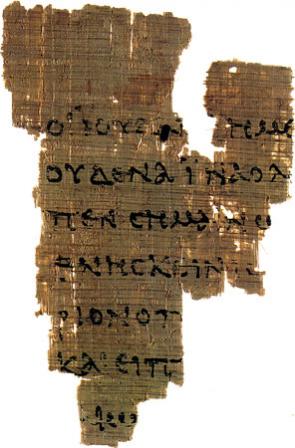 ΟΙ ΪΟΥΔΑΙ ΗΜΕ
ΟΥΔΕΝΑ ΪΝΑ Ο Λ
ΠΕΝ ϹΗΜΑΙΝΩ
ΘΝΗϹΚΕΙΝ ΙϹ
ΡΙΟΝ Ο Π
ΚΑΙ ΕΙΠ